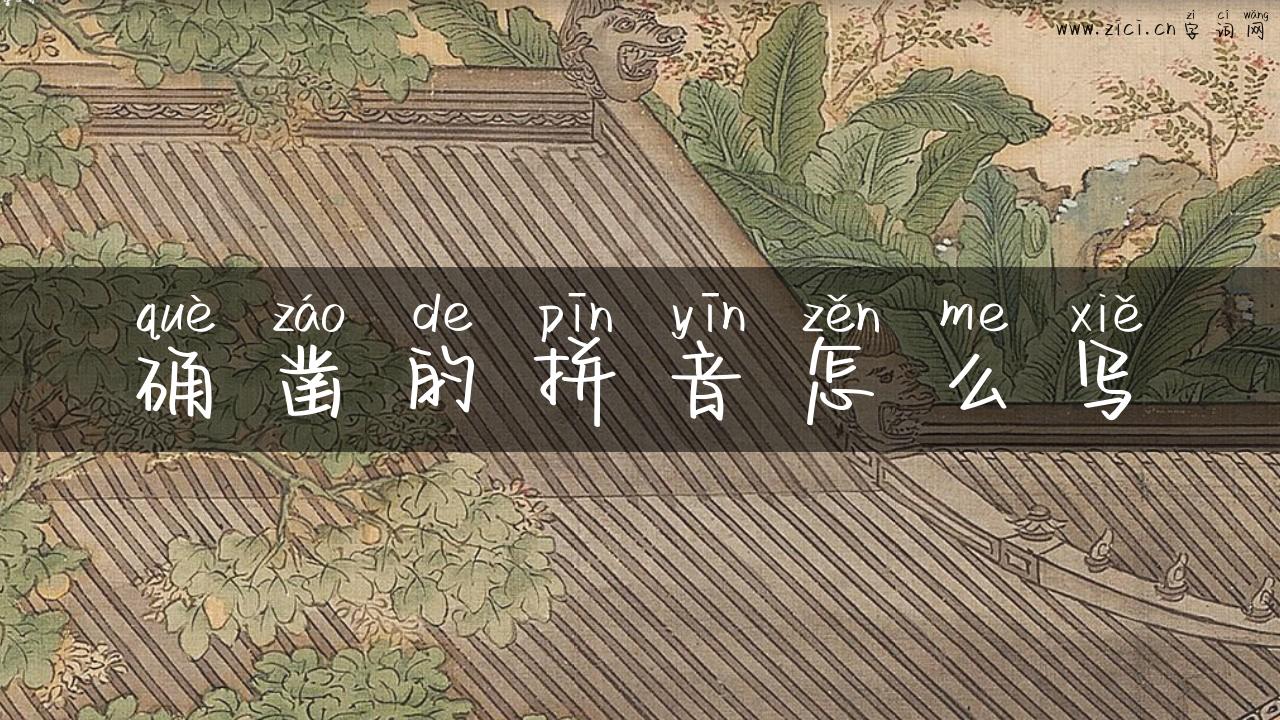 www.zici.cn 字词网
zì cí wǎng
què záo de pīn yīn zěn me xiě
确凿的拼音怎么写